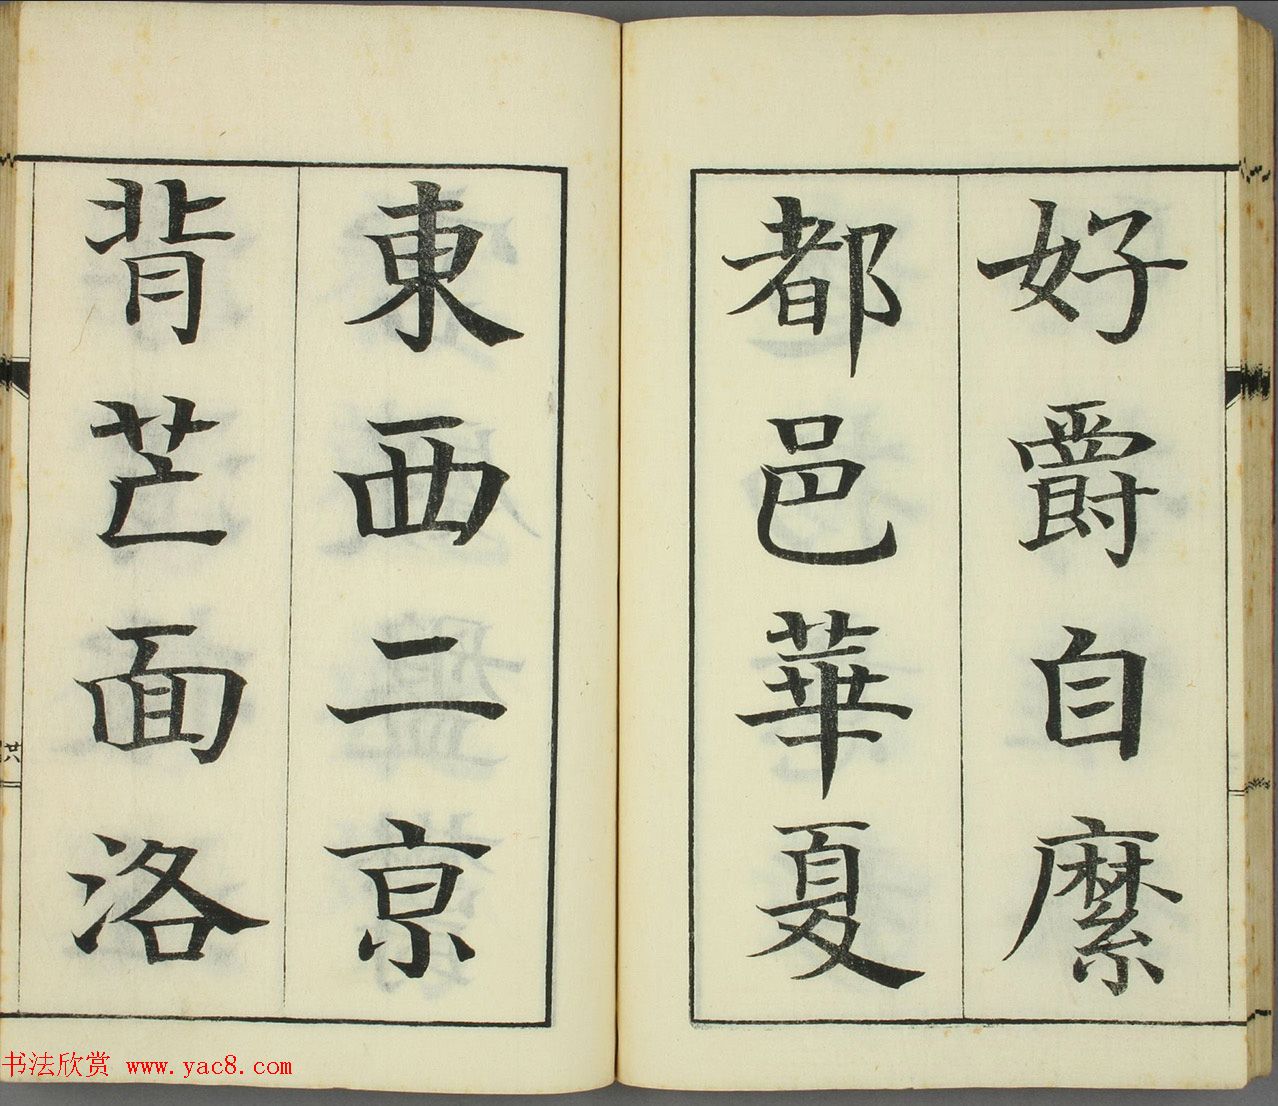 好爵自縻
都邑華夏
東西二京
背芒面洛
廿六
书法欣赏 www.yac8.com